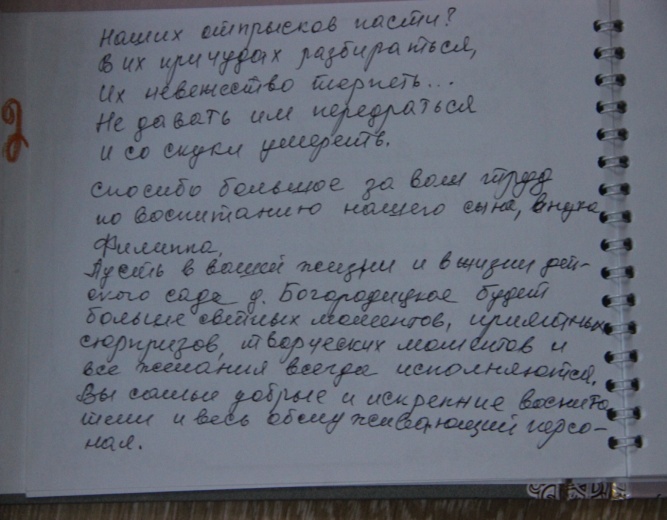 Наших отпрысков пасти?
В их причудах разбираться,
Их невежество терпеть...
Не давать им передраться
И со скуки умереть.
Спасибо большое за ваш труд
по воспитанию нашего сына, внука
Филиппа.
Пусть в вашей жизни и в жизни дет-
ского сада д. Богородицкое будет
больше светлых моментов, приятных
сюрпризов, творческих моментов и
все желания всегда исполняются.
Вы самые добрые и искренние воспита
тели и весь обслуживающий персо-
нал.